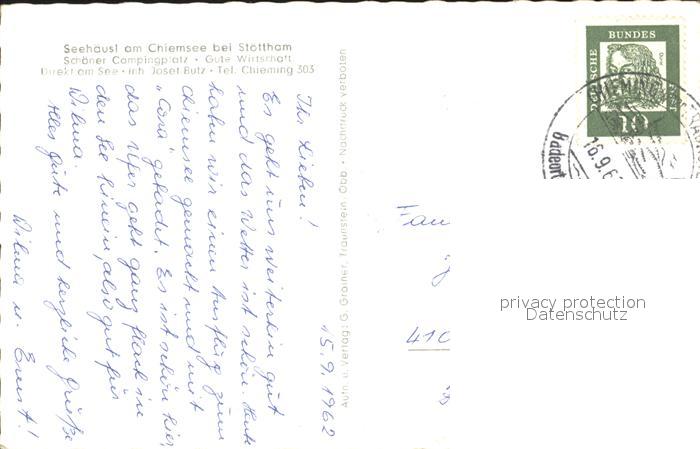 Seehäusl am Chiemsee bei Stöttham
Schöner Campingplatz · Gute Wirtschaft
Direkt am See · Inh. Josef Butz · Tel. Chieming 303
15.9.1962
Ihr Lieben!
Es geht uns weiterhin gut
und das Wetter ist schön. Heute
haben wir einen Ausflug zum
Chiemsee gemacht und mit
"Cora" gebadet. Es ist schön hier,
das Ufer geht ganz flach in
den See hinein, also gut für
Wilma.
Alles Gute und herzliche Grüße
Wilma u. Ernst!
Aufn. u. Verlag: G. Grainer, Traunstein, Obb. · Nachdruck verboten
DEUTSCHE BUNDES
10
16.9.6
Badeort
Fam
410
privacy protection
Datenschutz